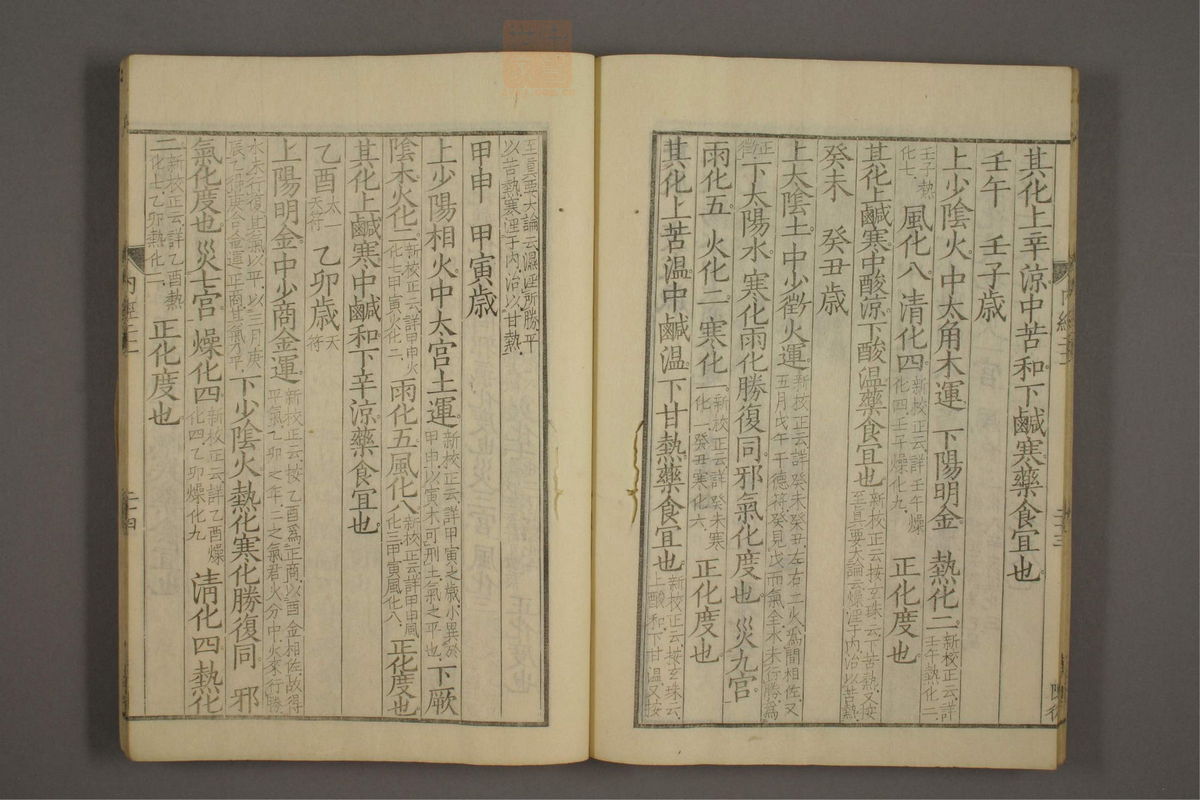 其化上辛涼中苦和下鹹寒藥食宜也
壬午　壬子歲
上少陰火　中太角木運　下陽明金　熱化二新校正云詳壬午熱化二
壬子熱化七　風化八　清化四新校正云詳壬午燥化四壬午燥化九　正化度也
其化上鹹寒中酸涼下酸溫藥食宜也新校正云按玄珠云下苦熱又按至真要大論云燥淫于內治以苦熱
癸未　癸丑歲
上太陰土　中少徵火運新校正云詳癸未癸丑左右二火為間相佐又五月戊午干德符癸見戊而氣全水未行勝為
正徵下太陽水　寒化雨化勝復同邪氣化度也　災九宮
雨化五　火化二　寒化一新校正云詳癸未寒化一癸丑寒化六　正化度也
其化上苦溫中鹹溫下甘熱藥食宜也新校正云按玄珠云上酸和下甘溫又按
至真要大論云濕淫所勝平以苦熱寒淫于內治以甘熱
甲申　甲寅歲
上少陽相火中太宮土運新校正云詳甲寅之歲小異於甲申以寅木可刑土氣之平也下厥
陰木火化二新校正云詳甲申火化七甲寅火化二雨化五風化八新校正云詳甲申風化三甲寅風化八正化度也
其化上鹹寒中鹹和下辛涼藥食宜也
乙酉太一天符　乙卯歲天符
上陽明金中少商金運新校正云按乙酉為正商以酉金相佐故得平氣乙卯之年二之氣君火分中火來行勝
水未行復其氣以平以三月庚辰乙得庚合金運正商其氣乃平下少陰火　熱化寒化勝復同　邪
氣化度也　災七宮　燥化四新校正云詳乙酉燥化四乙卯燥化九　清化四　熱化
二新校正云詳乙酉熱化七乙卯熱化二　正化度也
內經二十
二十三
內經二十
二十四